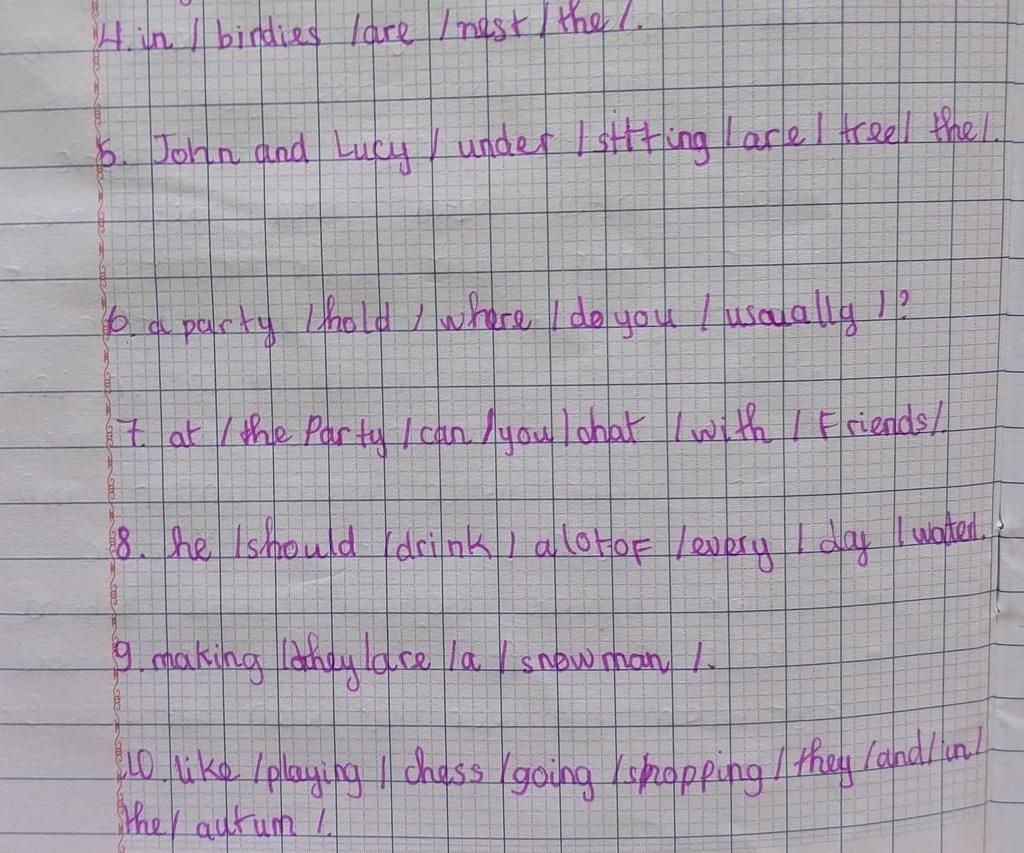 4. in / birdies / are / nest / the /.
5. John and Lucy / under / sitting / are / tree / the /.
6. a party / hold / where / do you / usually / ?
7. at / the Party / can / you / chat / with / Friends /.
8. he / should / drink / a lot of / every / day / water.
9. making / they / are / a / snowman /.
10. like / playing / chess / going / shopping / they / and / in /
the / autum /.